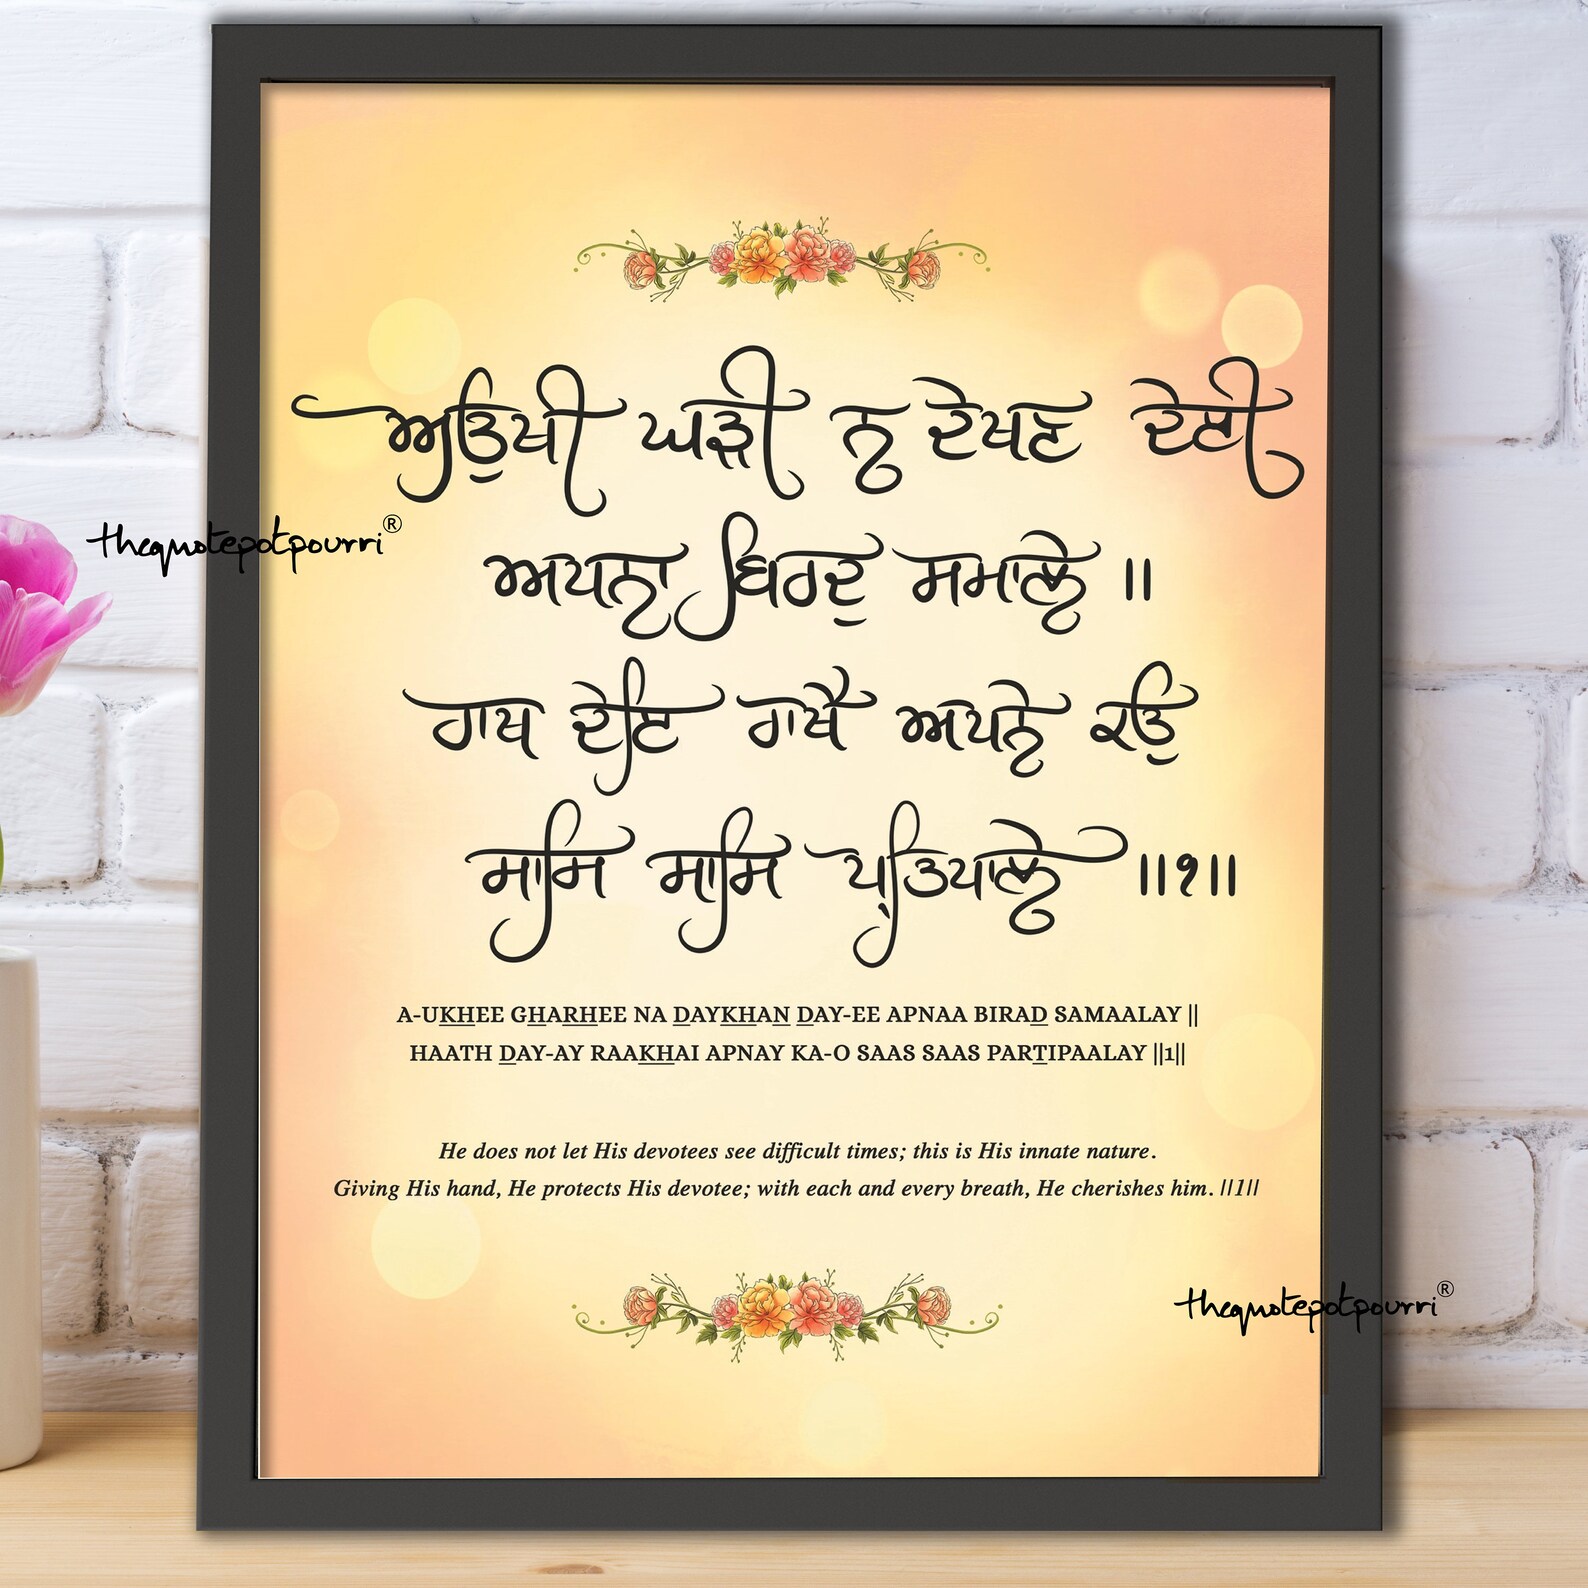 ਅਉਖੀ ਘੜੀ ਨ ਦੇਖਣ ਦੇਈ
thequotepotpourri®
ਅਪਨਾ ਬਿਰਦੁ ਸਮਾਲੇ ॥
ਹਾਥ ਦੇਇ ਰਾਖੈ ਅਪਨੇ ਕਉ
ਸਾਸਿ ਸਾਸਿ ਪ੍ਰਤਿਪਾਲੇ ॥੧॥
A-UKHEE GHARHEE NA DAYKHAN DAY-EE APNAA BIRAD SAMAALAY ||
HAATH DAY-AY RAAKHAI APNAY KA-O SAAS SAAS PARTIPAALAY ||1||
He does not let His devotees see difficult times; this is His innate nature.
Giving His hand, He protects His devotee; with each and every breath, He cherishes him. ||1||
thequotepotpourri®